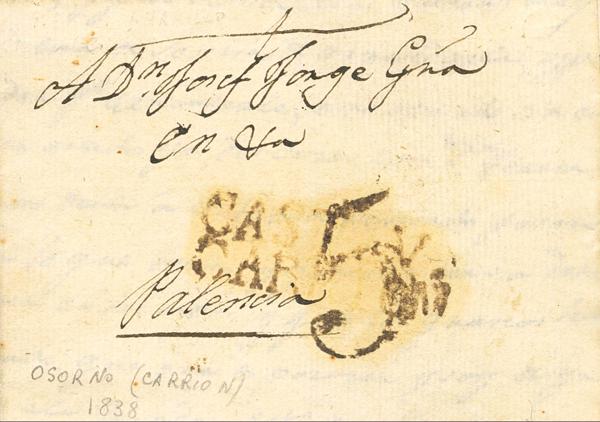 A Dn Josef Jorge Gña
en va
CAS 5 V.
CAR
Palencia
OSORNO (CARRION)
1838